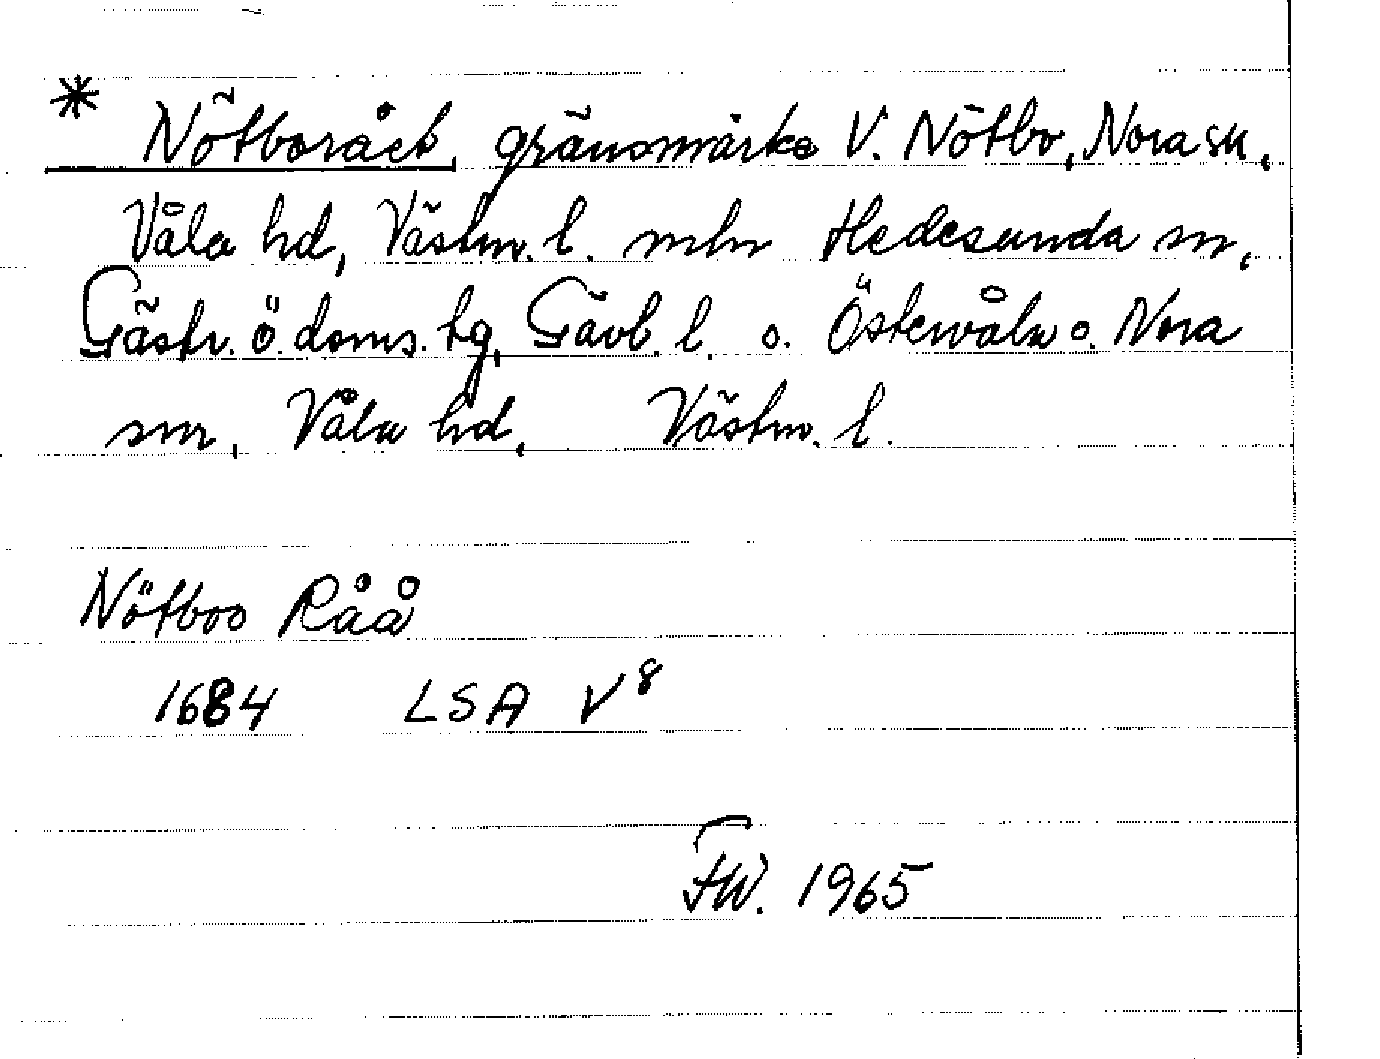 * Nötboråeb, gränsmärke V. Nötbo, Nora sn,
Våla hd, Västm. l. mln Hedesunda sn,
Gästr. ö. doms. tg, Gävl. l. o. Östervåla o. Nora
snr, Våla hd, Västm. l.
Nötboo Råå
1684 LSA V⁸
FW. 1965